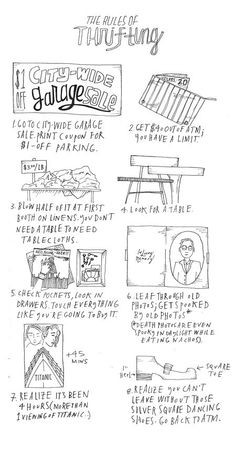 THE RULES OF
THRIFTING
$1 OFF
CITY-WIDE
garage SALE
20
1. GO TO CITY-WIDE GARAGE
SALE. PRINT COUPON FOR
$1-OFF PARKING.
2. GET $40 OUT OF ATM;
YOU HAVE A LIMIT.
3. BLOW HALF OF IT AT FIRST
BOOTH ON LINENS. YOU DON'T
NEED A TABLE TO NEED
TABLECLOTHS.
4. LOOK FOR A TABLE.
5. CHECK POCKETS, LOOK IN
DRAWERS. TOUCH EVERYTHING
LIKE YOU'RE GOING TO BUY IT.
6. LEAF THROUGH OLD
PHOTOS; GET SPOOKED
BY OLD PHOTOS*
(*DEATH PHOTOS ARE EVEN
SPOOKY IN DAYLIGHT WHILE
EATING NACHOS).
+45
MINS
TITANIC
7. REALIZE IT'S BEEN
4 HOURS (MORE THAN
1 VIEWING OF TITANIC.)
1"
HEEL
SQUARE
TOE
8. REALIZE YOU CAN'T
LEAVE WITHOUT THOSE
SILVER SQUARE DANCING
SHOES. GO BACK TO ATM.